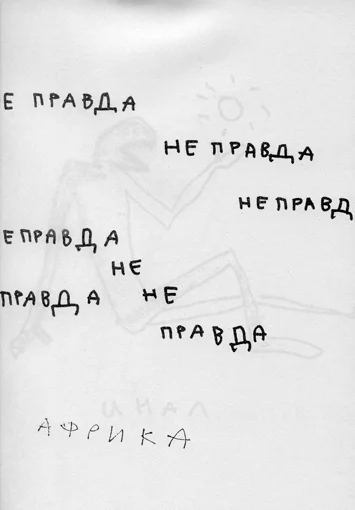 Е ПРАВДА
НЕ ПРАВДА
НЕПРАВД
ЕПРАВДА
НЕ
ПРАВДА НЕ
ПРАВДА
АФРИКА